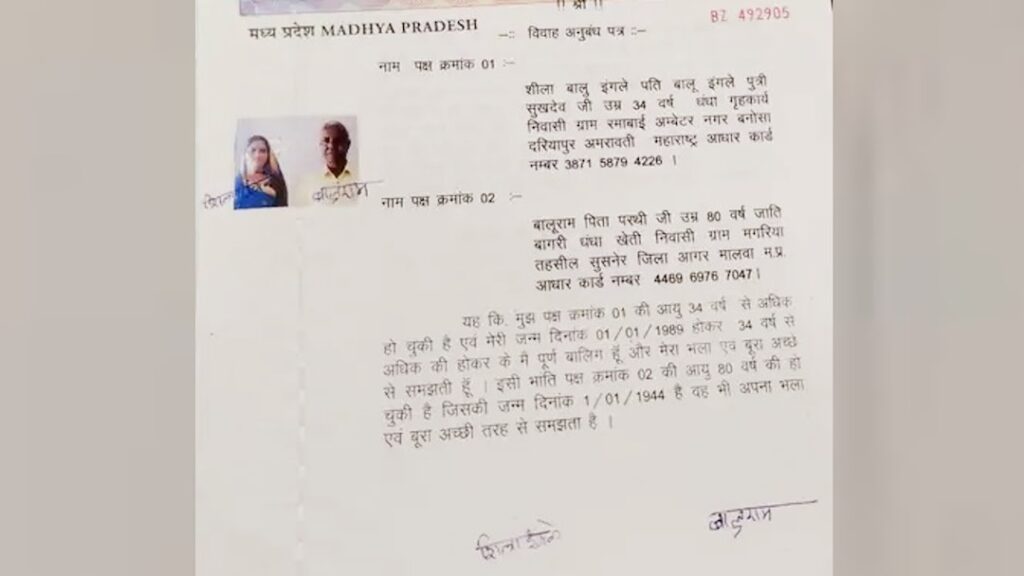 ।। श्री ।।
BZ 492905
मध्य प्रदेश MADHYA PRADESH
–:: विवाह अनुबंध पत्र ::–
नाम पक्ष क्रमांक 01 :–
शीला बालु इंगले पति बालू इंगले पुत्री
सुखदेव जी उम्र 34 वर्ष धंधा गृहकार्य
निवासी ग्राम रमाबाई अम्बेटर नगर बनोसा
दरियापुर अमरावती महाराष्ट्र आधार कार्ड
नम्बर 3871 5879 4226 ।
नाम पक्ष क्रमांक 02 :–
बालूराम पिता परथी जी उम्र 80 वर्ष जाति
बागरी धंधा खेती निवासी ग्राम मगरिया
तहसील सुसनेर जिला आगर मालवा म.प्र.
आधार कार्ड नम्बर 4469 6976 7047।
यह कि. मुझ पक्ष क्रमांक 01 की आयु 34 वर्ष से अधिक
हो चुकी है एवं मेरी जन्म दिनांक 01/01/1989 होकर 34 वर्ष से
अधिक की होकर के मै पूर्ण बालिग हूँ और मेरा भला एव बूरा अच्छे
से समझती हूँ । इसी भांति पक्ष क्रमांक 02 की आयु 80 वर्ष की हो
चुकी है जिसकी जन्म दिनांक 1/01/1944 है वह भी अपना भला
एवं बूरा अच्छी तरह से समझता है ।
बालुराम
शिला इंगले
बालुराम